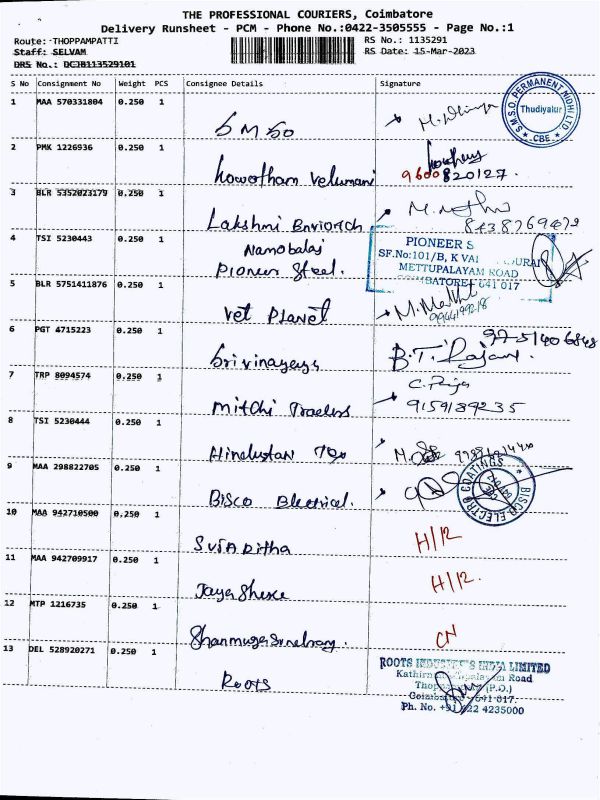 THE PROFESSIONAL COURIERS, Coimbatore
Delivery Runsheet - PCM - Phone No.:0422-3505555 - Page No.:1
Route: THOPPAMPATTI
RS No.: 1135291
Staff: SELVAM
RS Date: 15-Mar-2023
DRS No.: DCJB113529101
S No Consignment No Weight PCS Consignee Details Signature
1 MAA 570331804 0.250 1
S.M.S.O. PERMANENT NIDHI LTD
Thudiyalur
CBE
SMSO
2 PMK 1226936 0.250 1
Gowotham Velumani 9600820127.
3 BLR 5352023179 0.250 1
Lakshmi
8438769472
4 TSI 5230443 0.250 1
Namobalaj
Pioneer Steel.
PIONEER S
SF.No:101/B, K VA
METTUPALAYAM ROAD
641 017
5 BLR 5751411876 0.250 1
Vet Planet
6 PGT 4715223 0.250 1
Srivinayaga
B.T. Rajan.
7 TRP 8094574 0.250 1
Mitchi Traders
9159189235
8 TSI 5230444 0.250 1
Hindustan
9 MAA 298822705 0.250 1
Bisco Electrical.
BISCO ELECTRO COATINGS
10 MAA 942710500 0.250 1
H/12
11 MAA 942709917 0.250 1
Jaya Shree
H/12.
12 MTP 1216735 0.250 1
CN
13 DEL 528920271 0.250 1
Roots
ROOTS INDUSTRIES INDIA LIMITED
Road
(P.O.)
Coimbatore - 641 017.
Ph. No. +91 422 4235000